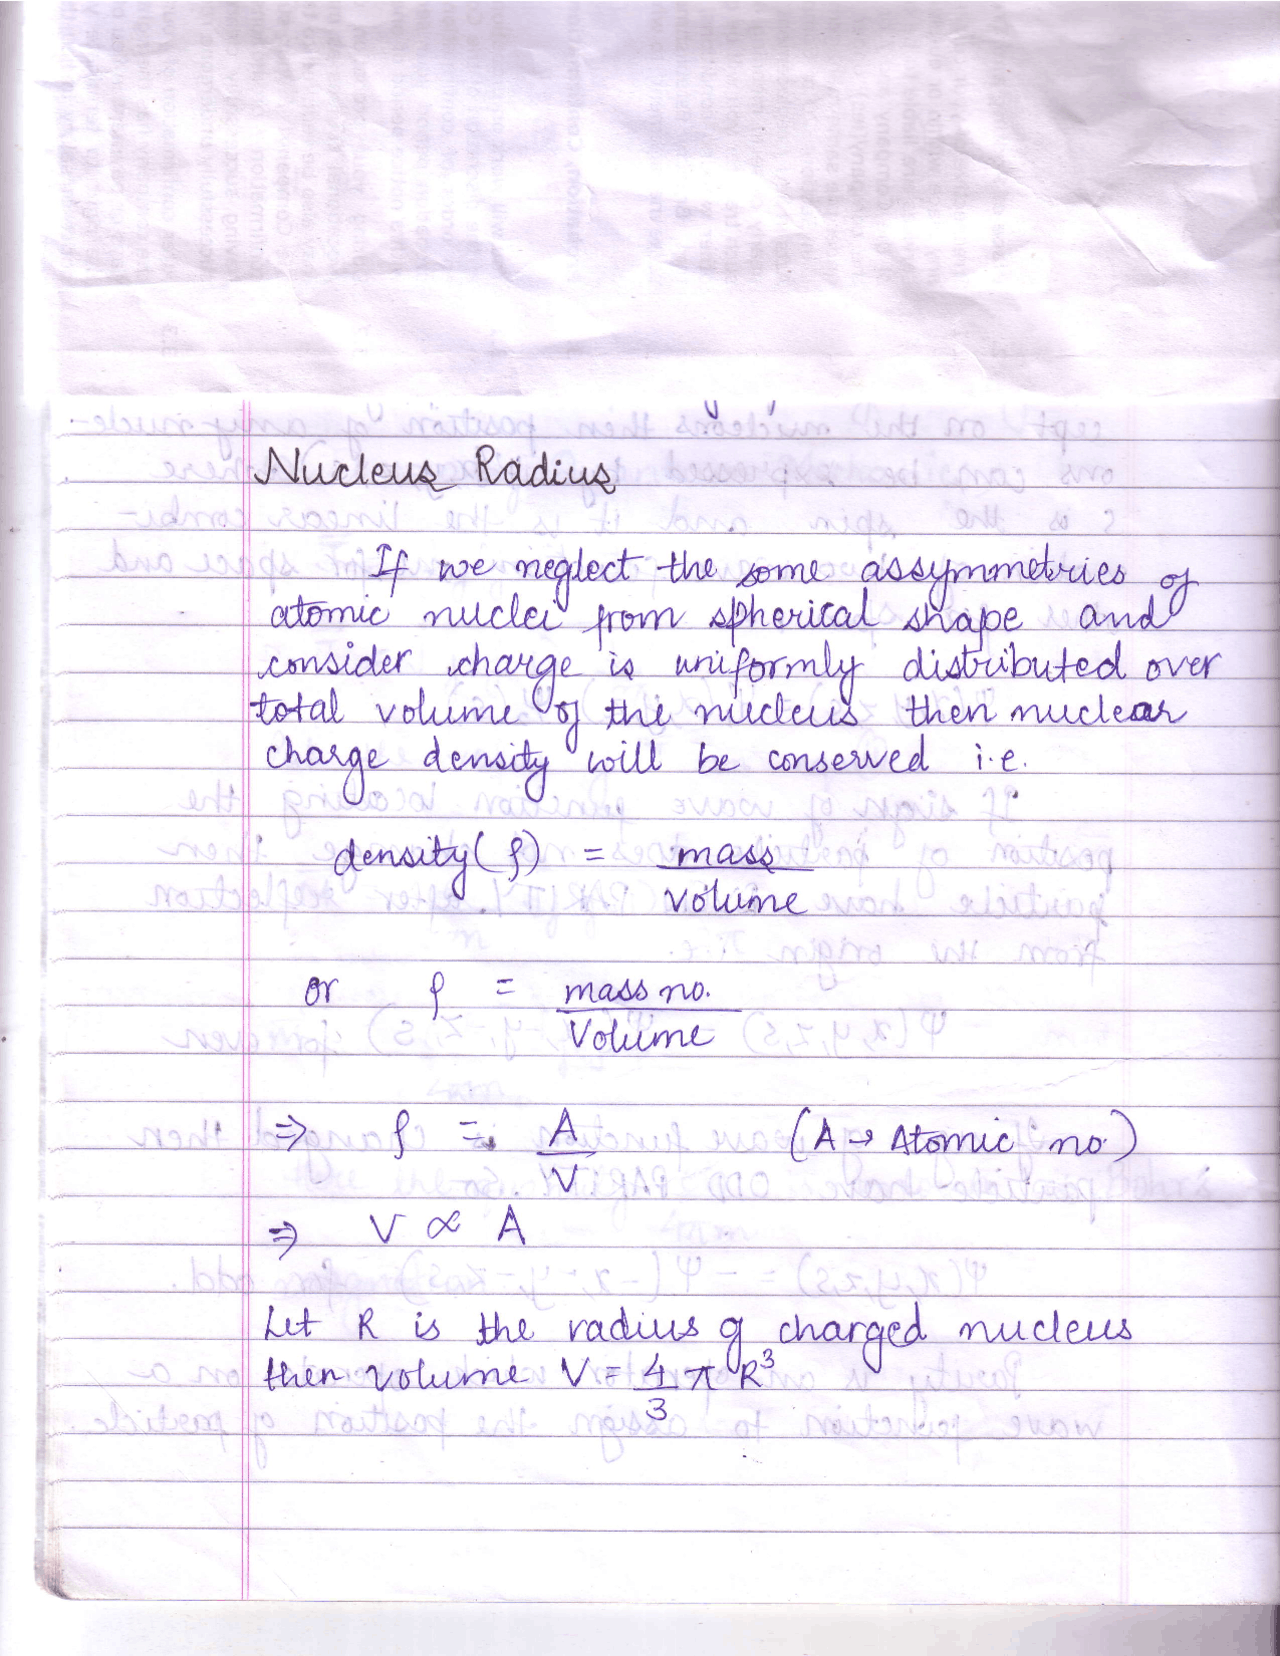 Nucleus Radius
If we neglect the some assymmetries of
atomic nuclei from spherical shape and
consider charge is uniformly distributed over
total volume of the nucleus then nuclear
charge density will be conserved i.e.
density (ρ) = mass / volume
or ρ = mass no. / Volume
⇒ ρ = A / V (A → Atomic no.)
⇒ V ∝ A
Let R is the radius of charged nucleus
then volume V = 4/3 π R³